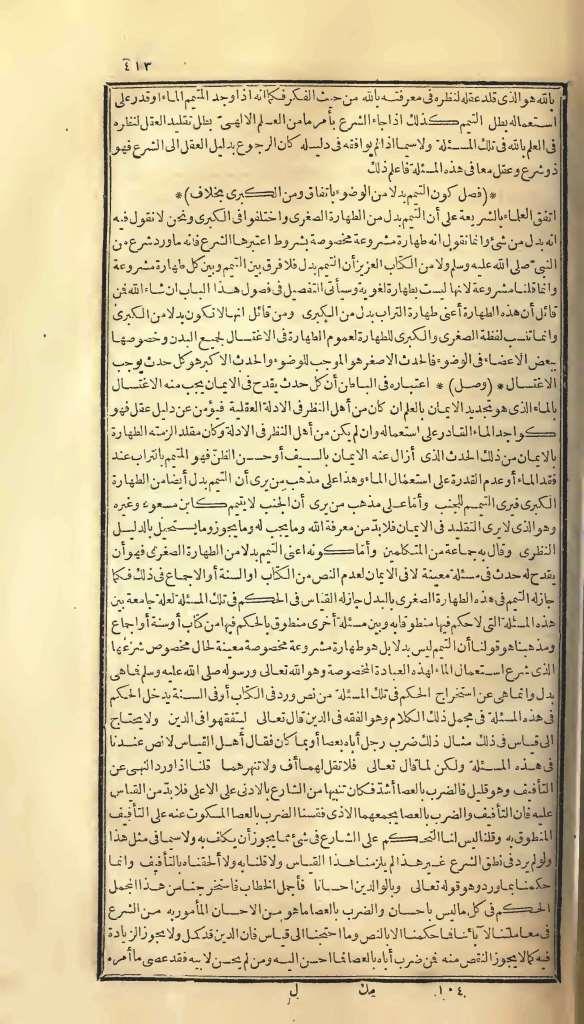 ٤١٣
بالله هو الذى قلد عقله لنظره فى معرفته بالله من حيث الفكر فكما انه اذا وجد المتيمم الماء أو قدر على
استعماله بطل التيمم كذلك اذا جاء الشرع بأمر ما من العلم الالهى بطل تقليد العقل لنظره
فى العلم بالله فى تلك المسئلة ولا سيما اذا لم يوافقه فى دليله كان الرجوع بدليل العقل الى الشرع فهو
ذو شرع وعقل معا فى هذه المسئلة فاعلم ذلك
*(فصل كون التيمم بدلا من الوضوء باتفاق ومن الكبرى بخلاف)*
اتفق العلماء بالشريعة على أن التيمم بدل من الطهارة الصغرى واختلفوا فى الكبرى ونحن لا نقول فيه
انه بدل من شئ وانما نقول انه طهارة مشروعة مخصوصة بشروط اعتبرها الشرع فانه ما ورد شرع من
النبى صلى الله عليه وسلم ولا من الكتاب العزيز أن التيمم بدل فلا فرق بين التيمم وبين كل طهارة مشروعة
وانما قلنا مشروعة لانها ليست بطهارة لغوية وسيأتى التفصيل فى فصول هذا الباب ان شاء الله فمن
قائل أن هذه الطهارة أعنى طهارة التراب بدل من الكبرى ومن قائل انها لا تكون بدلا من الكبرى
وانما نسب لفظة الصغرى والكبرى للطهارة لعموم الطهارة فى الاغتسال لجميع البدن وخصوصها
ببعض الاعضاء فى الوضوء فالحدث الاصغر هو الموجب للوضوء والحدث الاكبر هو كل حدث يوجب
الاغتسال * (وصل) * اعتباره فى الباطن أن كل حدث يقدح فى الايمان يجب منه الاغتسال
بالماء الذى هو تجديد الايمان بالعلم ان كان من أهل النظر فى الادلة العقلية فيؤمن عن دليل عقل فهو
كواجد الماء القادر على استعماله وان لم يكن من أهل النظر فى الادلة وكان مقلد الزمته الطهارة
بالايمان من ذلك الحدث الذى أزال عنه الايمان بالسيف أو حسن الظن فهو المتيمم بالتراب عند
فقد الماء أو عدم القدرة على استعمال الماء وهذا على مذهب من يرى أن التيمم بدل أيضا من الطهارة
الكبرى فيرى التيمم للجنب وأما على مذهب من يرى أن الجنب لا يتيمم كابن مسعود وغيره
وهو الذى لا يرى التقليد فى الايمان فلا بد من معرفة الله وما يجب له وما يجوز وما يستحيل بالدليل
النظرى وقال به جماعة من المتكلمين وأما كونه أعنى التيمم بدلا من الطهارة الصغرى فهو أن
يقدح له حدث فى مسئلة معينة لا فى الايمان لعدم النص من الكتاب أو السنة أو الاجماع فى ذلك فكما
جاز له التيمم فى هذه الطهارة الصغرى بالبدل جاز له القياس فى الحكم فى تلك المسئلة لعلة جامعة بين
هذه المسئلة التى لا حكم فيها منطوقا به وبين مسئلة أخرى منطوق بالحكم فيها من كتاب أو سنة أو اجماع
ومذهبنا هو قولنا أن التيمم ليس بدلا بل هو طهارة مشروعة مخصوصة معينة لحال مخصوص شرعها
الذى شرع استعمال الماء لهذه العبادة المخصوصة وهو الله تعالى ورسوله صلى الله عليه وسلم فما هى
بدل وانما هى عن استخراج الحكم فى تلك المسئلة من نص ورد فى الكتاب أو فى السنة يدخل الحكم
فى هذه المسئلة فى مجمل ذلك الكلام وهو الفقه فى الدين قال تعالى ليتفقهوا فى الدين ولا يحتاج
الى قياس فى ذلك مثال ذلك ضرب رجل أباه بعصا أو بما كان فقال أهل القياس لا نص عندنا
فى هذه المسئلة ولكن لما قال تعالى فلا تقل لهما أف ولا تنهرهما قلنا اذا ورد النهى عن
التأفيف وهو قليل فالضرب بالعصا أشد فكان تنبيها من الشارع بالادنى على الاعلى فلا بد من القياس
عليه فان التأفيف والضرب بالعصا يجمعهما الاذى فقسنا الضرب بالعصا المسكوت عنه على التأفيف
المنطوق به وقلنا ليس لنا التحكم على الشارع فى شئ مما يجوز أن يكلف به ولا سيما فى مثل هذا
ولو لم يرد فى نطق الشرع غير هذا لم يلزمنا هذا القياس ولا قلنا به ولا ألحقناه بالتأفيف وانما
حكمنا بما ورد وهو قوله تعالى وبالوالدين احسانا فأجمل الخطاب فاستخرجنا من هذا المجمل
الحكم فى كل ما ليس باحسان والضرب بالعصا ما هو من الاحسان المأمور به من الشرع
فى معاملتنا لآبائنا فما حكمنا الا بالنص وما احتجنا الى قياس فان الدين قد كمل ولا يجوز الزيادة
فيه كما لا يجوز النقص منه فمن ضرب أباه بالعصا فما أحسن اليه ومن لم يحسن لابيه فقد عصى ما أمره
١٠٤ مك ل